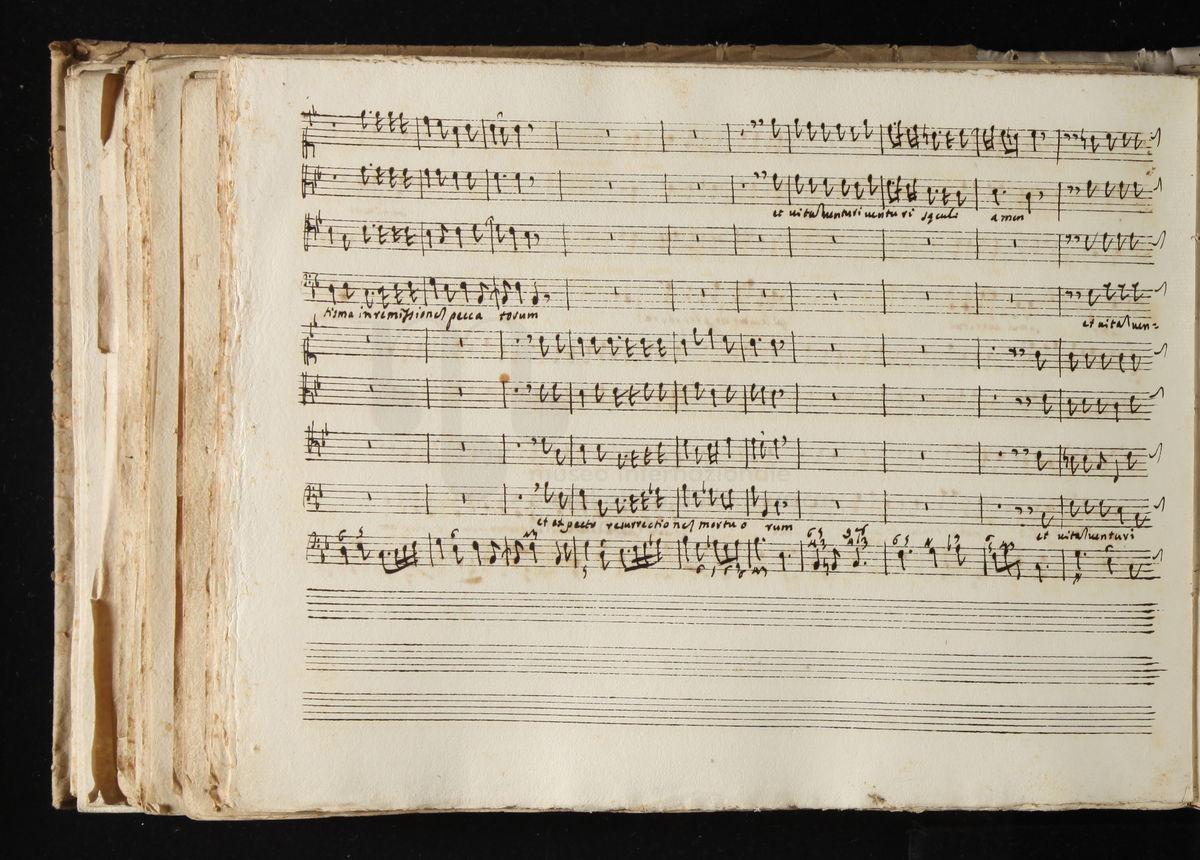 et vita venturi venturi sęculi amen
tisma in remissiones pecca torum
et vita ven=
museo internazionale
et expecto resurrectiones mortuo rum
et vita venturi